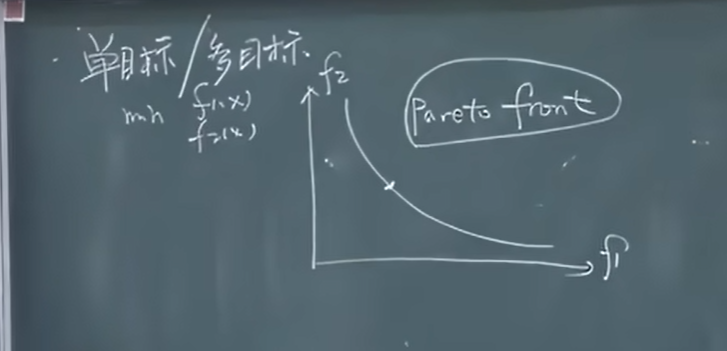 · 单目标/多目标.
min f₁(x)
f₂(x)
f₂
Pareto front
f₁